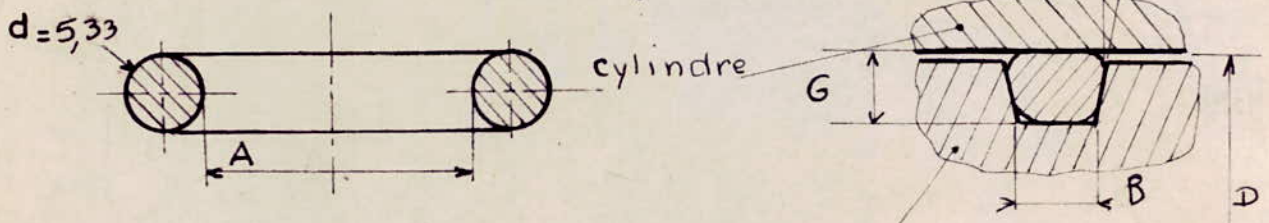 d = 5,33
cylindre
G
A
B
D